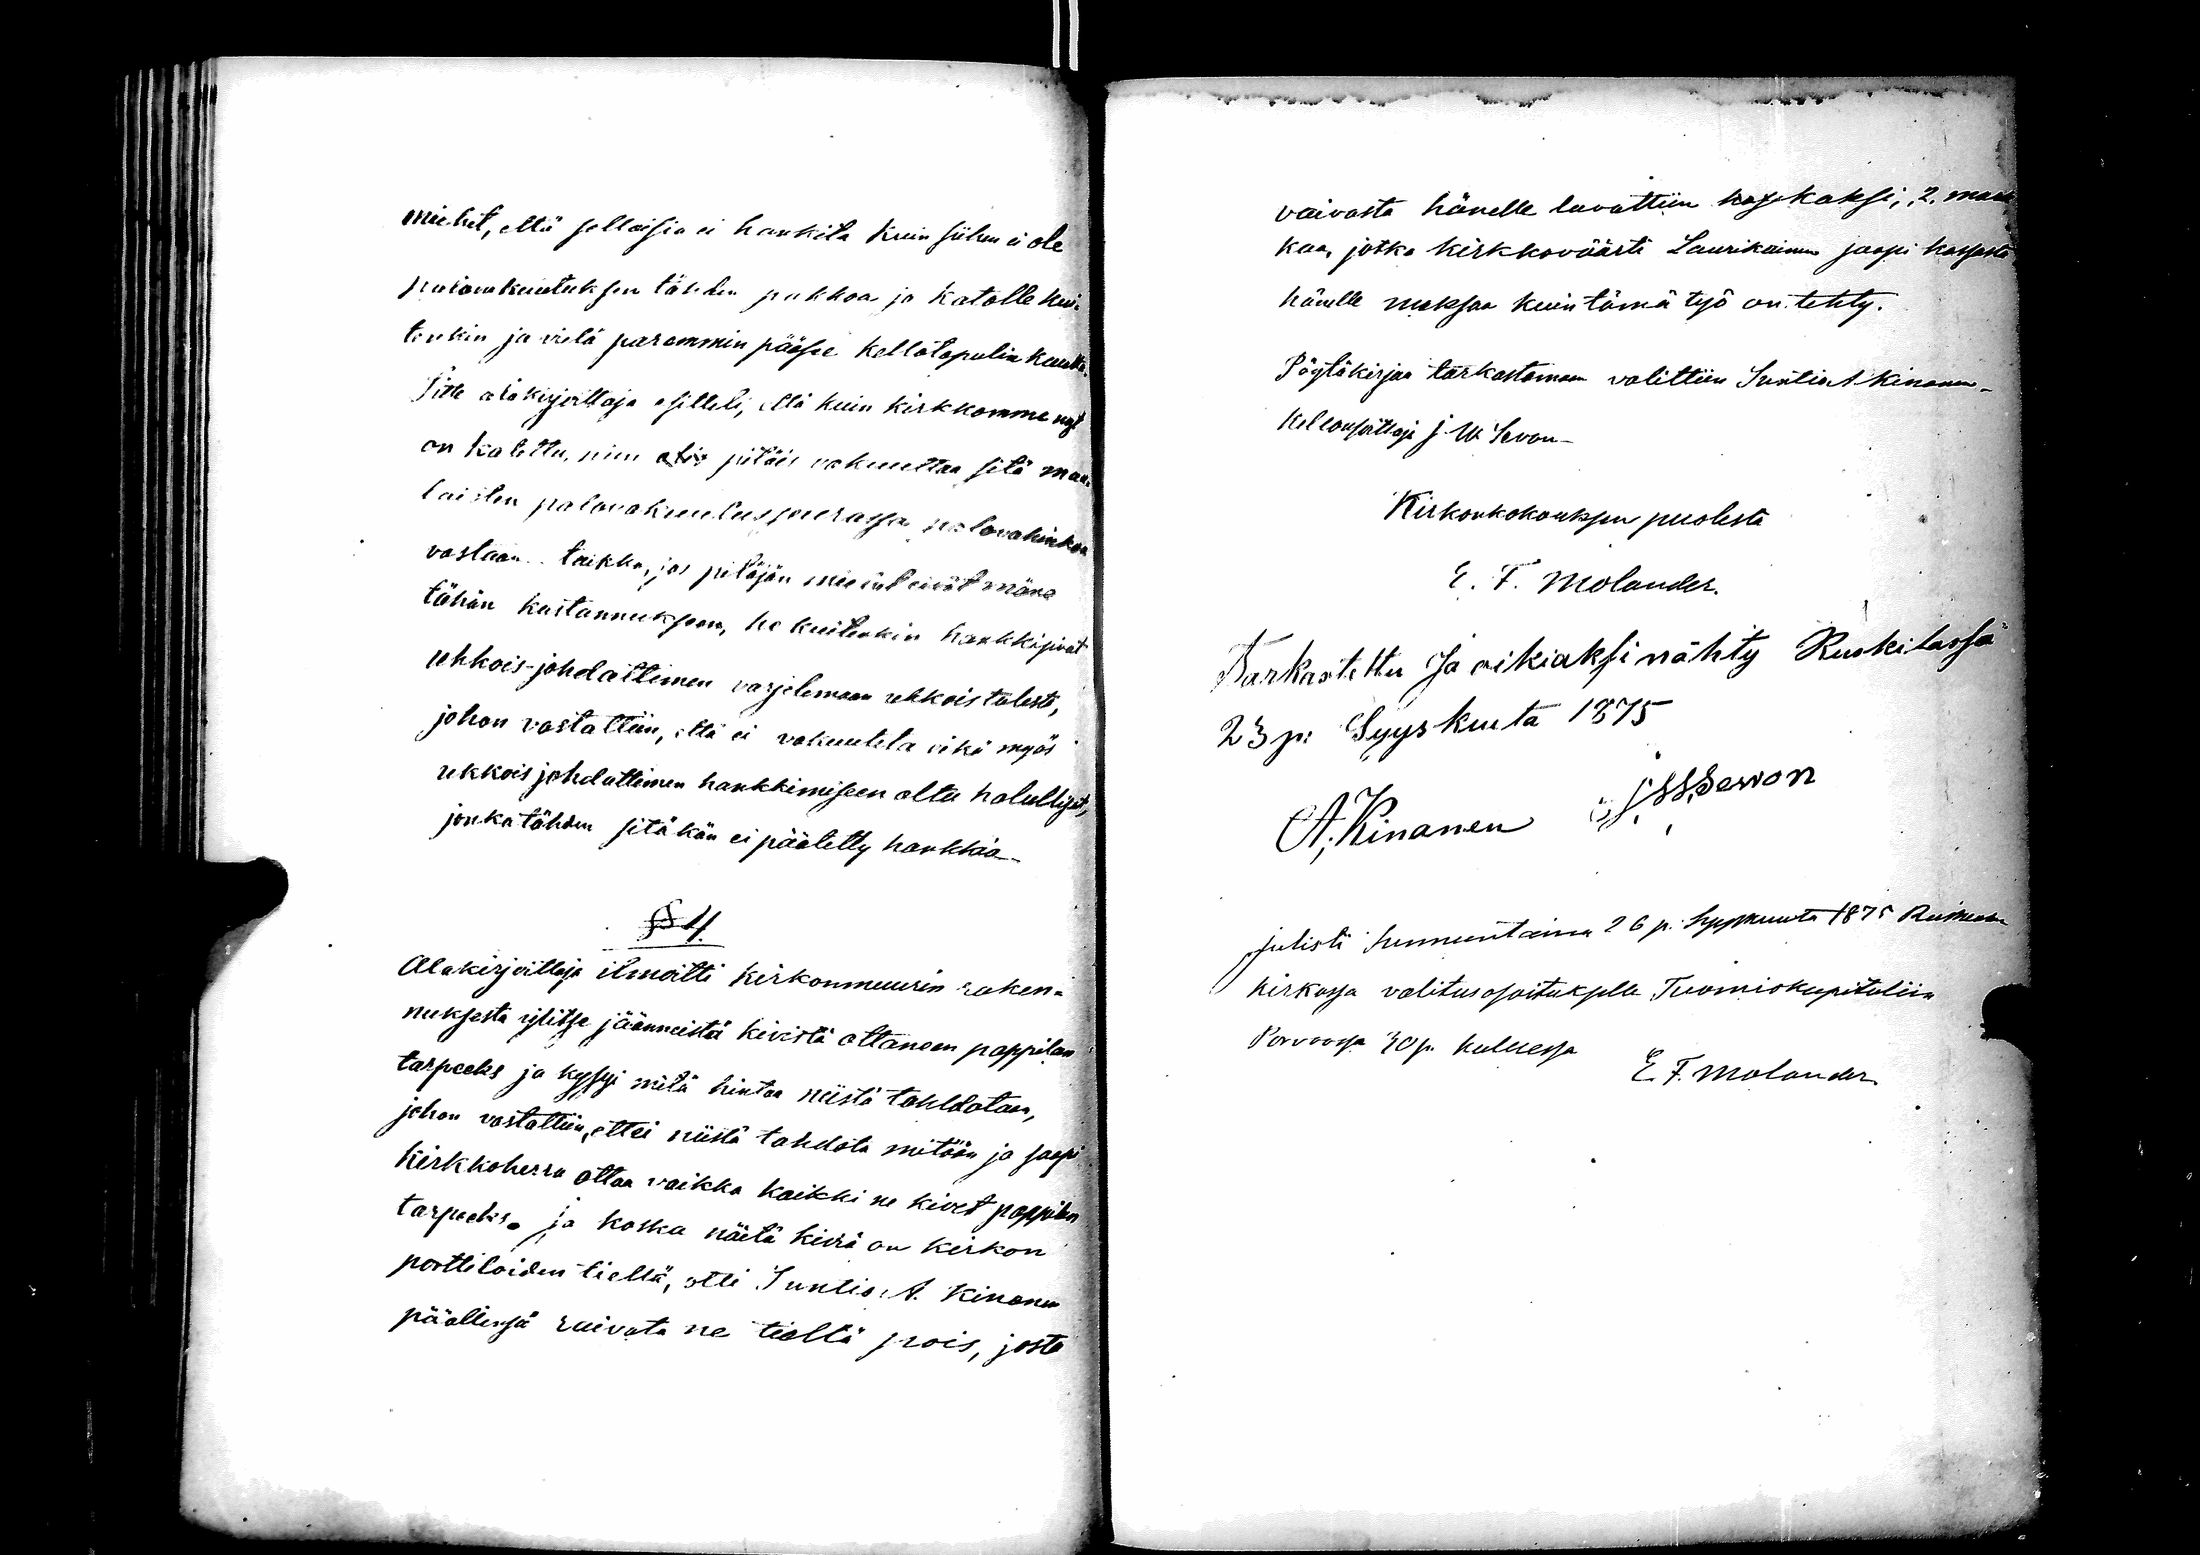 miehet, että sellaisia ei hankita kuin siihen ei ole
palovakuutuksen tähden pakkoa ja katolle kui-
tenkin ja vielä parammin pääsee kellotapulin kautta.
Sitte alakirjoittaja esitteli, että kuin kirkkomme nyt
on katettu, niin pitäis vakuuttaa sitä maa-
laisten palovakuutusseurassa palovahinkoa
vastaan taikka, jos pitäjän miehet eivät mäne
tähän kustannukseen, he kuitenkin hankkisivat
ukkois-johdattimen varjelemaan ukkoistulesta,
johon vastattiin, että ei vakuuteta eikä myös
ukkoisjohdattimen hankkimiseen oltu halulliset,
jonka tähden sitäkän ei päätetty hankkia.
§ 4.
Alakirjoittaja ilmoitti kirkonmuurin raken-
nuksesta ylitse jäänneistä kivistä ottaneen pappilan
tarpeeks ja kysyi mitä hintaa niistä tahdotaan,
johon vastattiin, ettei niistä tahdota mitään ja saapi
kirkkoherra ottaa vaikka kaikki ne kivet pappilan
tarpeeks. ja koska näitä kiviä on kirkon
porttiloiden tiellä, otti Suntio A. Kinanen
päällensä raivata ne tieltä pois, josta
vaivasta hänelle luvattiin kaksi, 2. mark
kaa, jotka kirkkoväärti Laurikainen saapi kassasta
hänelle maksaa kuin tämä työ on tehty.
Pöytäkirjaa tarkastamaan valittiin Suntio A Kinanen
Kellonsoittaja J. W. Sevon
Kirkonkokouksen puolesta
E. F. Molander.
Tarkastettu Ja oikiaksi nähty Ruskilassa
23 p: Syyskuuta 1875
A. Kinanen J W Sewon
Julisti Sunnuntaina 26 p. Syyskuuta 1875
kirkossa valitusosoituksella Tuomiokapituliin
Porvoossa 30 p. kuluessa
E. F. Molander